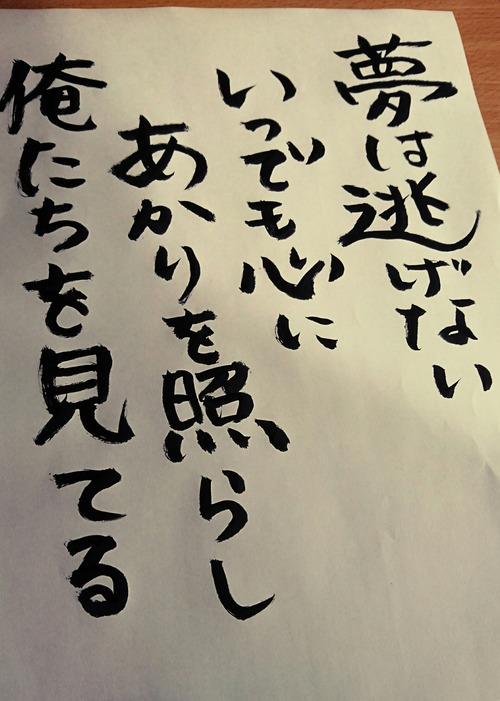 夢は逃げない
いつでも心に
あかりを照らし
俺たちを見てる